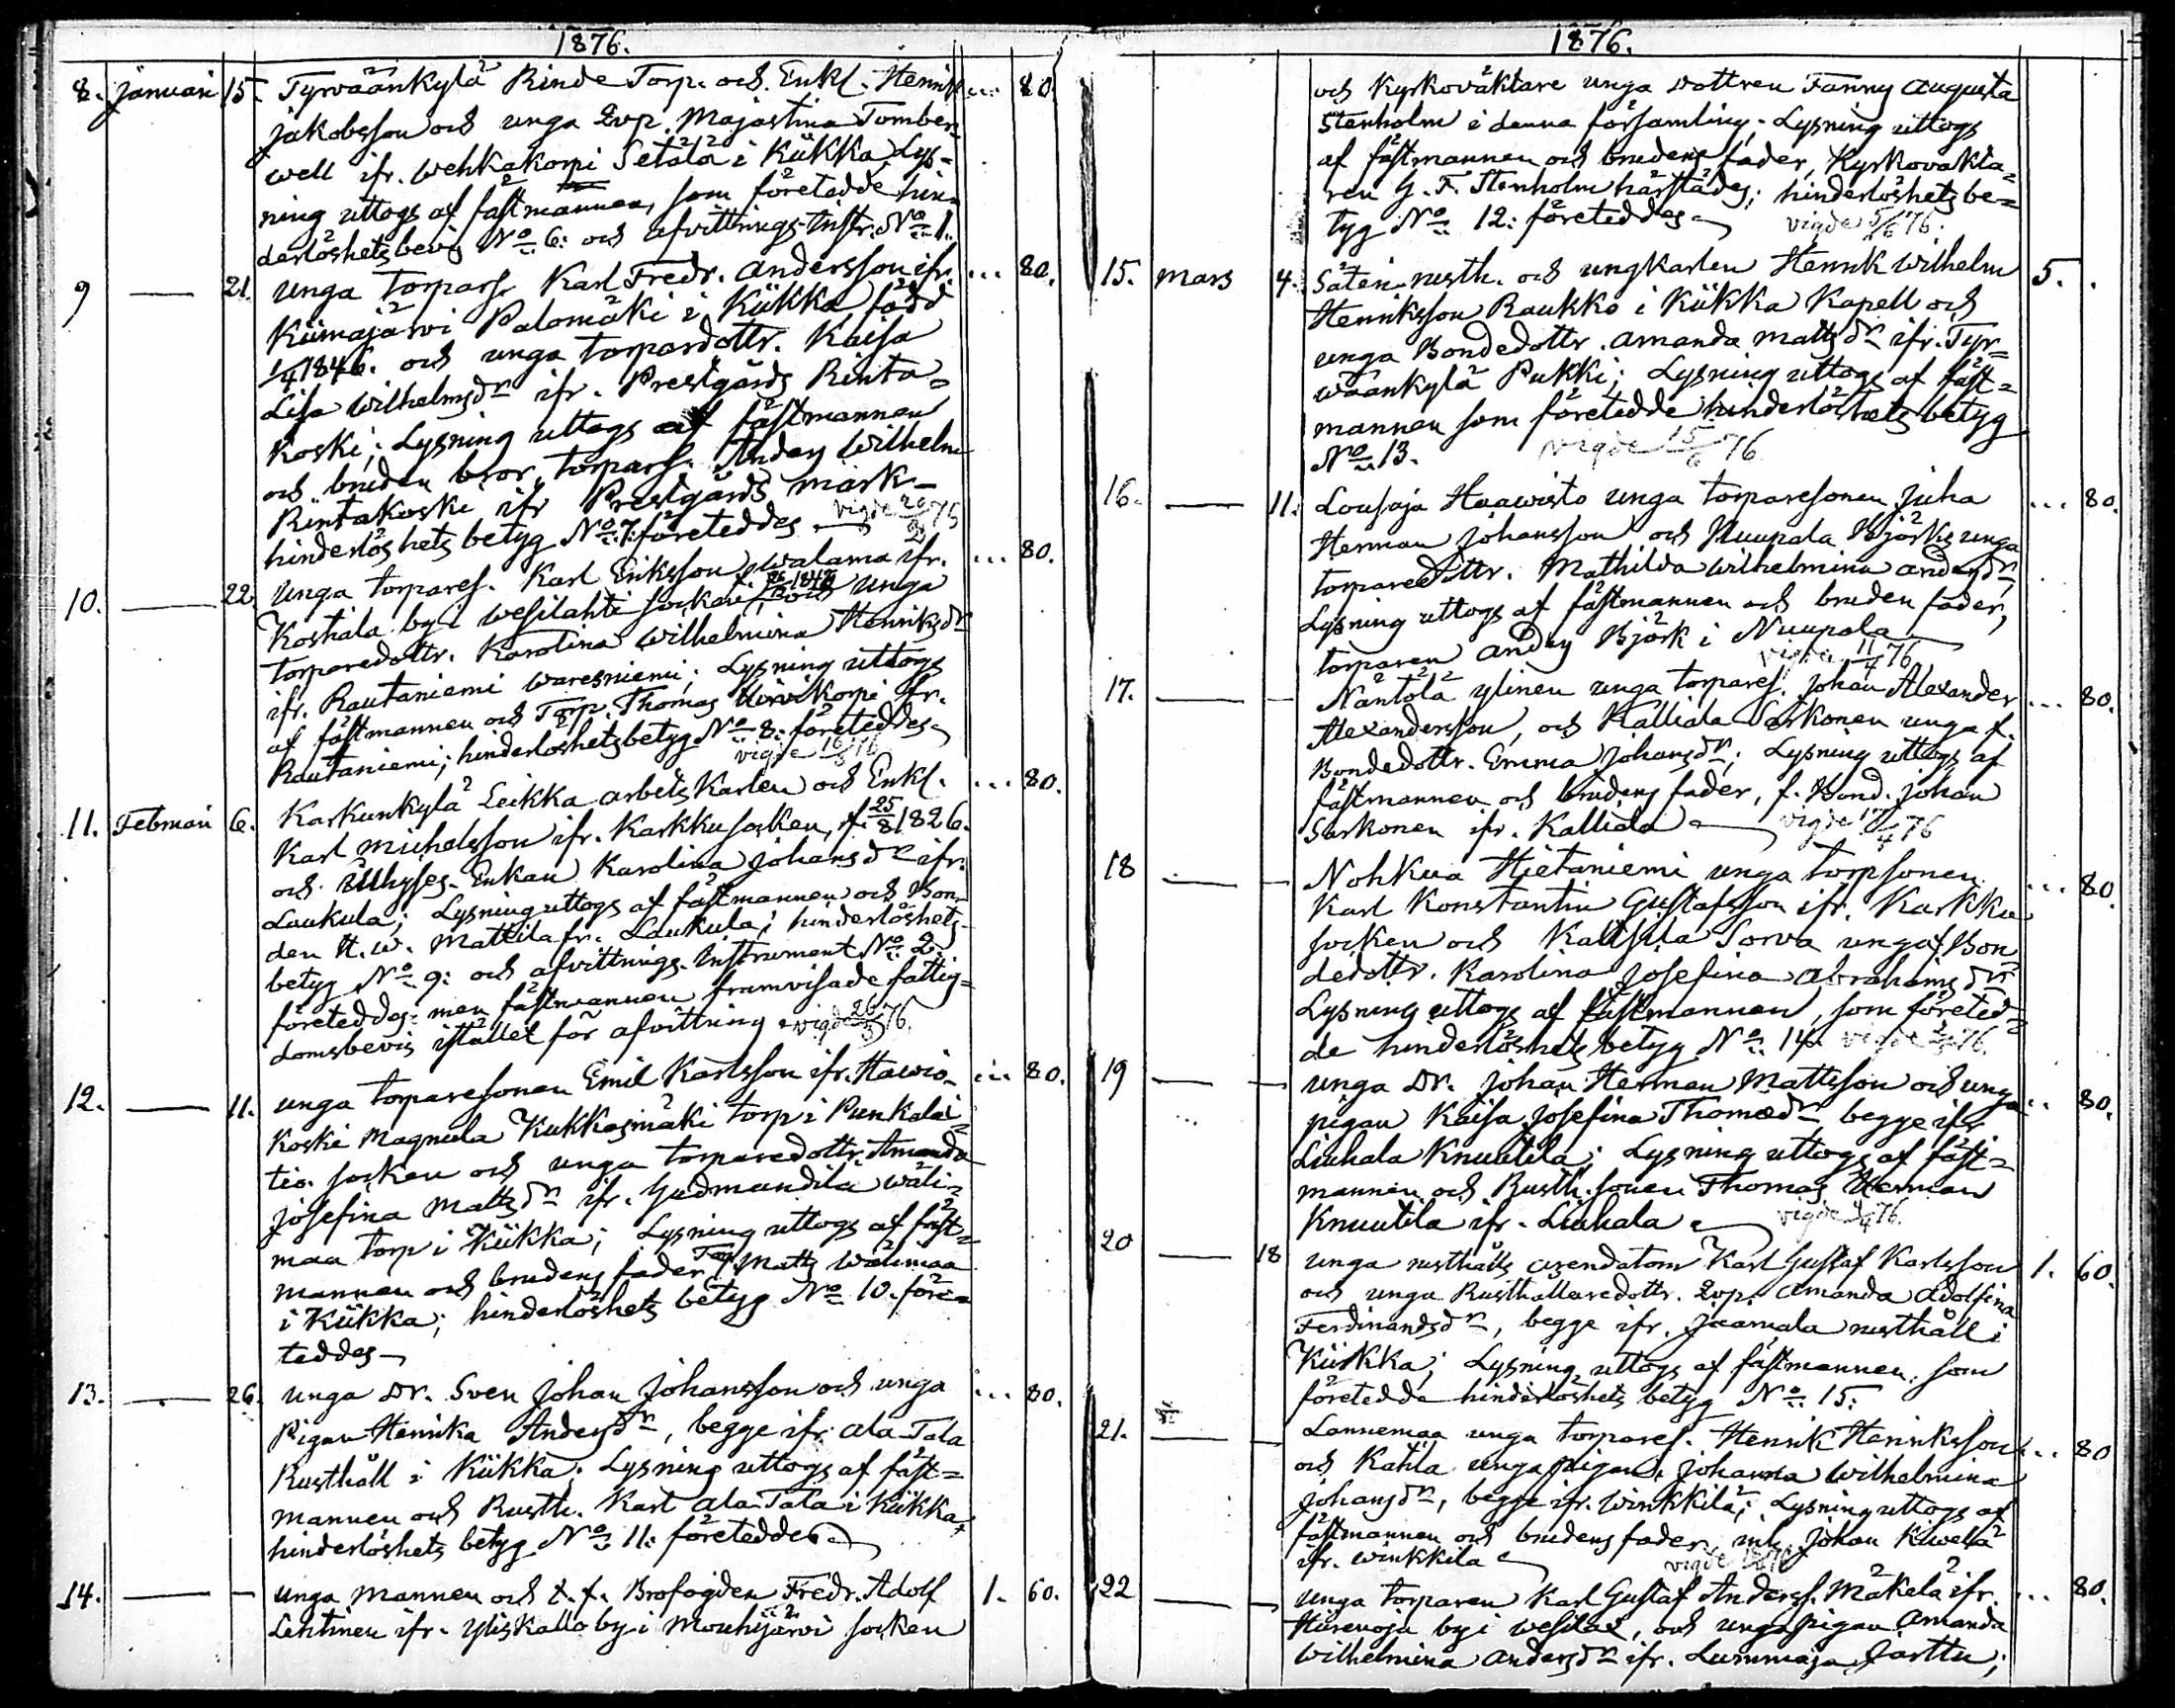 1876.
8. Januari 15. Tyrväänkylä Rinde Torp. och Enkl. Henrik ... 80.
Jakobsson och unga 2vp. Majastina Tomber-
well ifr. Wehkakorpi Setälä i Kiikka, Lys-
ning uttogs af fästmannen, som företedde hin-
derlöshets bevis No 6: och afvittrings-Instr: No 1.
9 — 21. unga torpars. Karl Fredr. Andersson ifr. ... 80.
Kiimajärvi Palomäki i Kiikka född
1/4 1846. och unga torpardottr. Kaisa
Lisa Wilhelmsdr ifr. Prestgårds Rinta-
koski; Lysning uttogs af fästmannen
och bruden bror, torpars. Anders Wilhelm
Rintakoski ifr Prestgårds mark-
hinderlöshets betyg No 7: företeddes — vigde
10. — 22. unga torpares. Karl Eriksson Walama ifr. ... 80.
Koskala by i Wesilahti socken, och unga
torparedottr. Karolina Wilhelmina Henriksdr
ifr. Rautaniemi Waresniemi; Lysning uttogs
af fästmannen och Torp. Thomas Hirvikorpi ifr.
Rautaniemi; hinderlöshetsbetyg No 8: företeddes
vigde
11. Februari 6. Karkunkylä Leikka arbets Karlen och Enkl. ... 80.
Karl Michelsson ifr. Karkku socken, f. 25/8 1826.
och Inhyses-Enkan Karolina Johansdr ifr.
Laukula; Lysning uttogs af fästmannen och Bon-
den H. W. Mattila fr. Laukula; hinderlöshets-
betyg No 9: och afvittrings-Instrument No 2:
företeddes: men fästmannen framvisade fattig-
domsbevis istället för afvittring. vigde 26/3 76.
12. — 11. unga torparesonen Emil Karlsson ifr. Hawio- ... 80.
koski Magnula Kukkasmäki torp i Punkalai-
tio. socken och unga torparedottr. Amanda
Josefina Mattsdr ifr. Gudmundila Wäli-
maa torp i Kiikka; Lysning uttogs af fäst-
mannen och brudens fader Torp Matts Wälimaa
i Kiikka; hinderlöshets betyg No 10. före-
teddes —
13. — 26. unga Dr. Sven Johan Johansson och unga ... 80.
Pigan Henrika Andersdr, begge ifr. Ala Tala
Rusthåll i Kiikka. Lysning uttogs af fäst-
mannen och Rusth. Karl Ala Tala i Kiikka,
hinderlöshets betyg No 11: företeddes
14. — — unga mannen och t. f. Brofogden Fredr. Adolf 1. 60.
Lehtinen ifr. Yliskallo by i Mouhijärvi socken
1876.
och Kyrkoväktare unga dottren Fanny Augusta
Stenholm i denna församling; Lysning uttogs
af fästmannen och brudens fader, Kyrkovakta-
ren G. F. Stenholm härstädes; hinderlöshets be-
tyg No 12: företeddes — vigde 5/6 76.
15. Mars 4. Säteri rusth. och ungkarlen Henrik Wilhelm 5. .
Henriksson Raukko i Kiikka Kapell och
unga Bondedottr. Amanda Mattsdr ifr. Tyr-
wäänkylä Pukki; Lysning uttogs af fäst-
mannen som företedde hinderlöshets betyg
No 13. vigde 15/6 76
16. — 11. Lousaja Haawisto unga torparesonen Juha ... 80.
Herman Johansson och Nuupala Björks unga
torparedottr. Mathilda Wilhelmina Andersdr,
Lysning uttogs af fästmannen och bruden fader,
torparen Anders Björk i Nuupala
vigde 11/4 76
17. — — Näntölä Ylinen unga torpares. Johan Alexander ... 80.
Alexandersson, och Kalliala Sarkonen unga f.
Bondedottr. Emma Johansdr; Lysning uttogs af
fästmannen och brudens fader, f. Bond. Johan
Sarkonen ifr. Kalliala — vigde 17/4 76
18 — — Nohkua Hietaniemi unga torpsonen ... 80.
Karl Konstantin Gustafsson ifr. Karkku
socken och Kaltsila Sorva unga f. Bon-
dedottr. Karolina Josefina Abrahamsdr
Lysning uttogs af fästmannen, som företed-
de hinderlöshets betyg No 14. vigde 76.
19 — — unga Dr. Johan Herman Mattsson och unga ... 80.
pigan Kaisa Josefina Thomædr begge ifr
Liuhala Knuutila; Lysning uttogs af fäst-
mannen och Rusth. sonen Thomas Herman
Knuutila ifr. Liuhala — vigde 76.
20 — 18 unga rusthålls arendatorn Karl Gustaf Karlsson 1. 60.
och unga Rusthållaredottr. 2vp. Amanda Adolfina
Ferdinandsdr, begge ifr. Jaamala rusthåll i
Kiikka; Lysning uttogs af fästmannen, som
företedde hinderlöshets betyg No 15:
21. — — Lannemaa unga torpares. Henrik Henriksson ... 80
och Kahla unga pigan Johanna Wilhelmina
Johansdr, begge ifr. Winkkilä; Lysning uttogs af
fästmannen och brudens fader, inh. Johan Kiwelä
ifr. Winkkila — vigde
22 — — unga torparen Karl Gustaf Anderss. Mäkelä ifr. ... 80.
Hurenoja by i Wesilax, och unga pigan Amanda
Wilhelmina Andersdr ifr. Lummaja Jarttu;